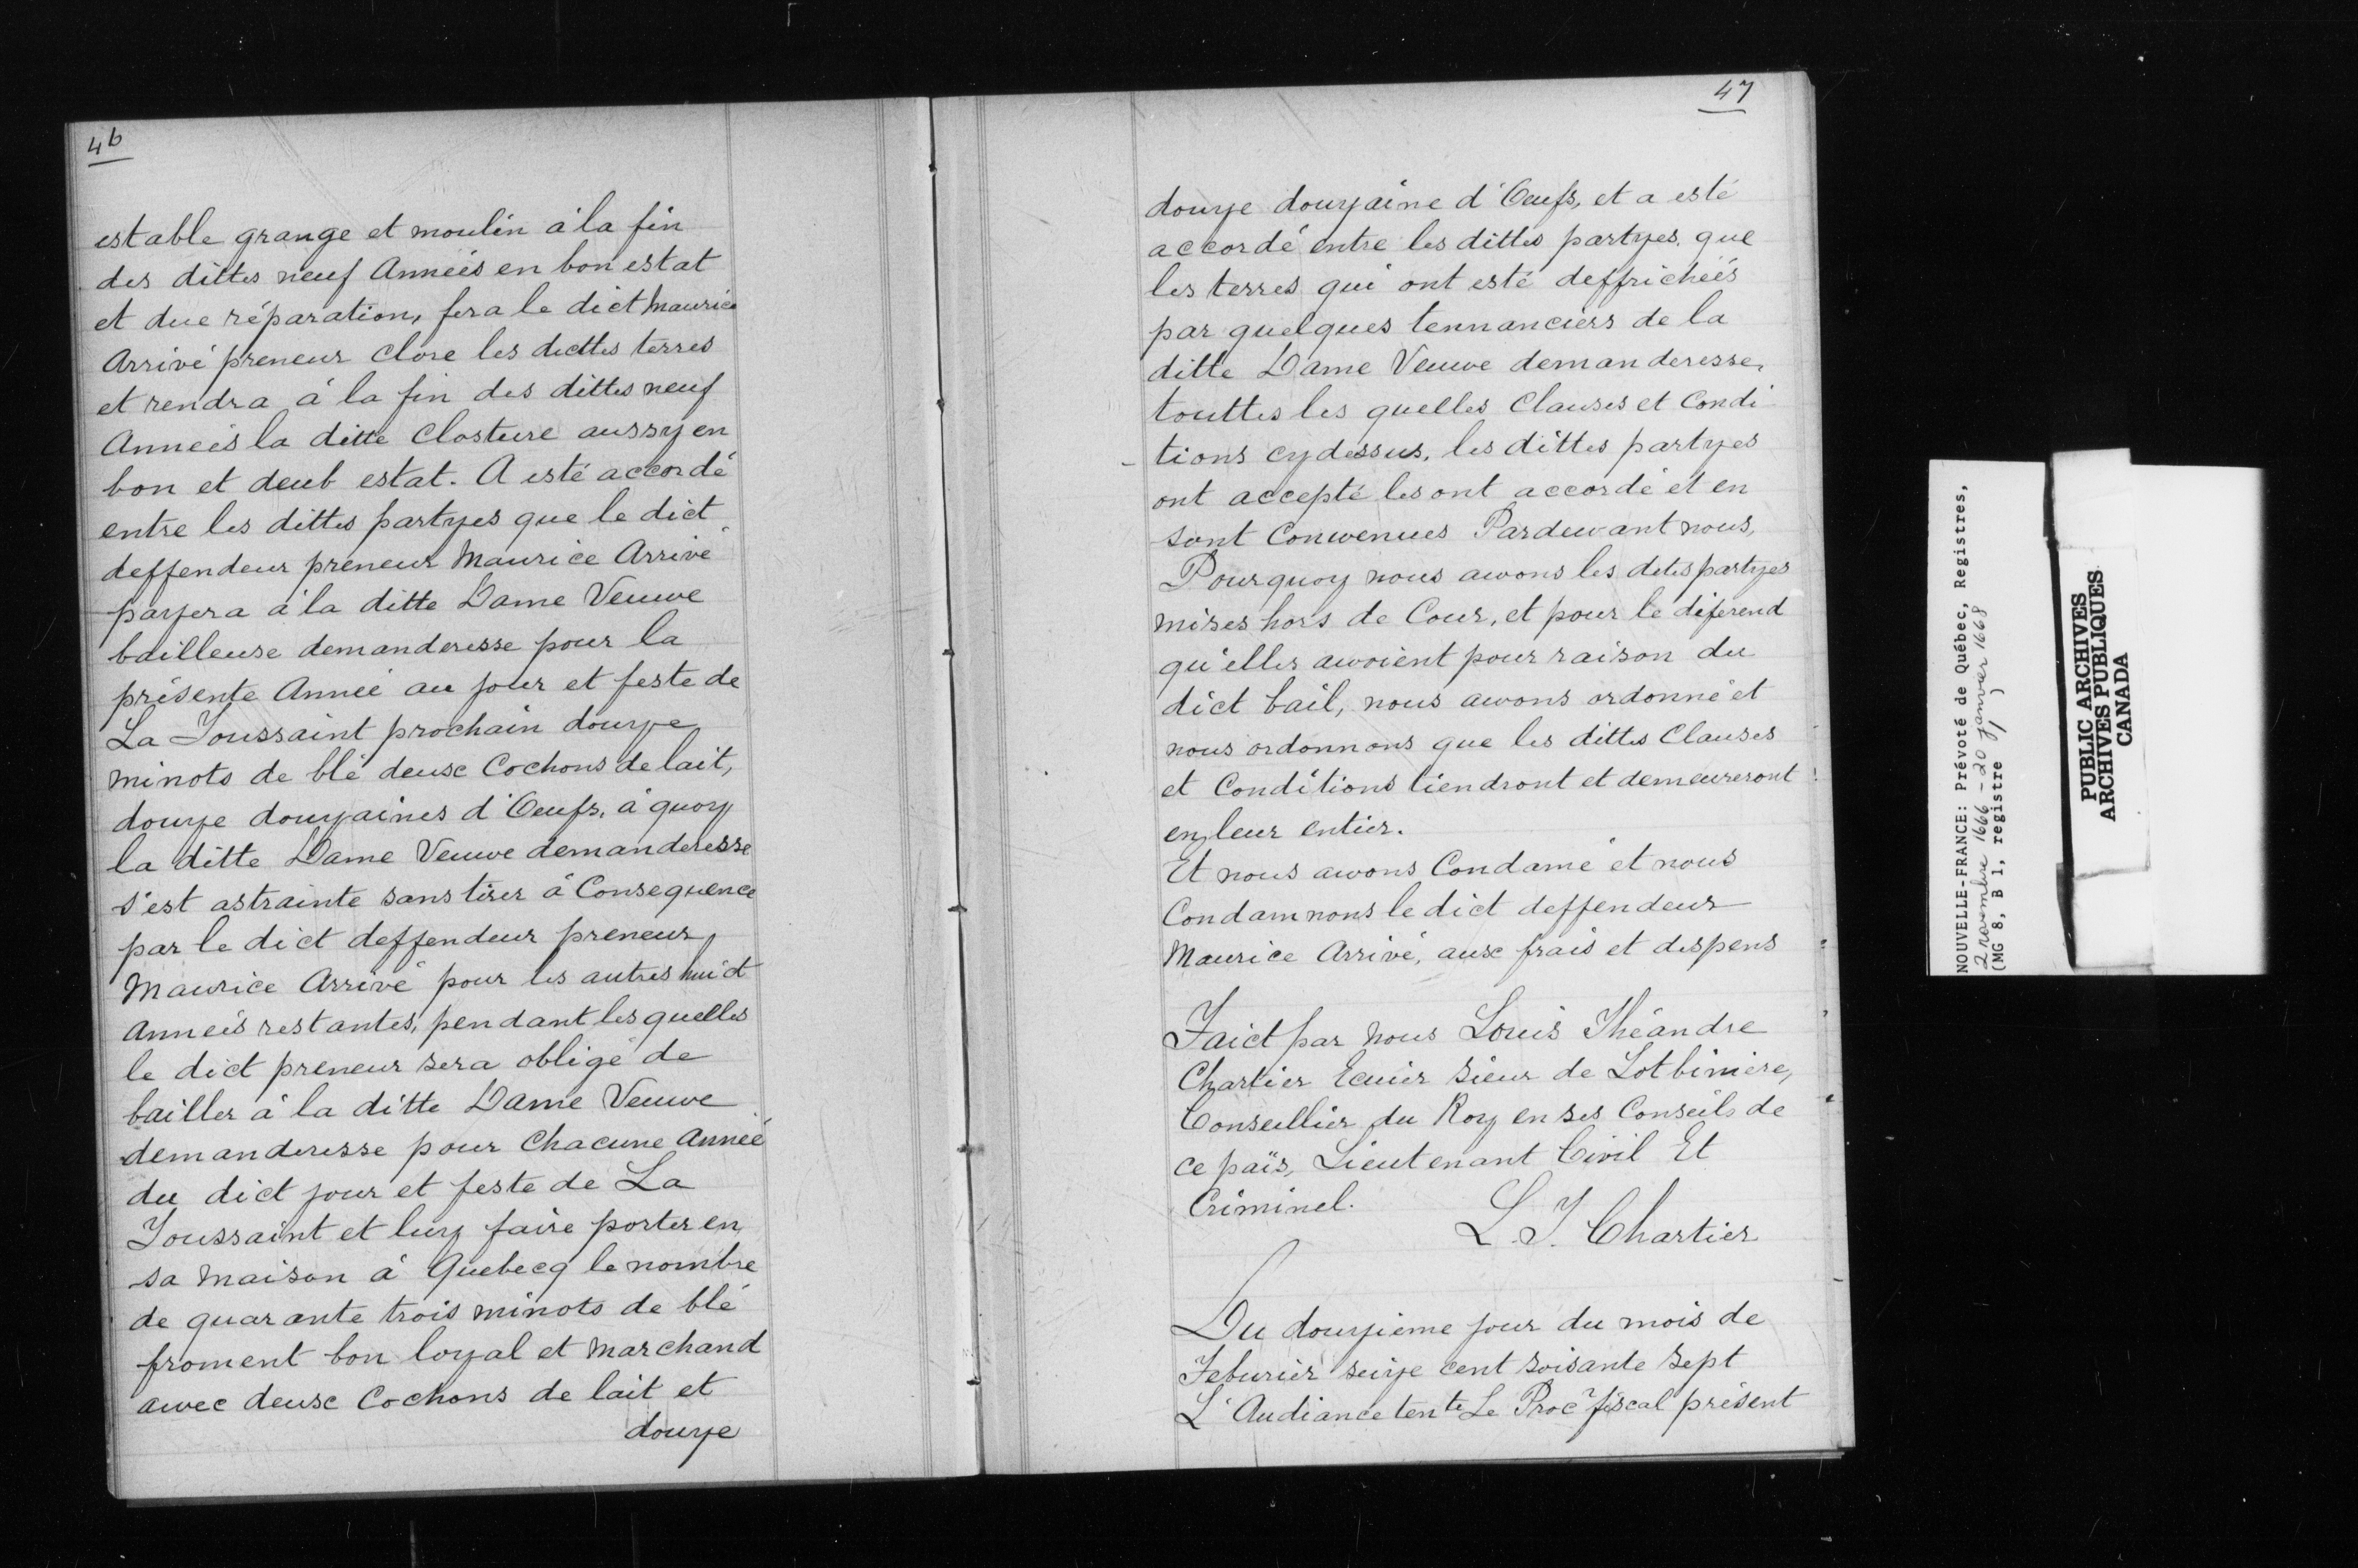 46
estable grange et moulin à la fin
des dittes neuf Annéés en bon estat
et due réparation, fera le dict Maurice
Arrivé preneur Clore les dicttes terres
et rendra à la fin des dittes neuf
Annéés la ditte Closture aussy en
bon et deub estat. A esté accordé
entre les dittes partyes que le dict
deffendeur preneur Maurice Arrivé
payera à la ditte Dame Veuwe
bailleuse demanderesse pour la
présente Année au jour et feste de
La Toussaint prochain douze
minots de blé deux Cochons de lait,
douze douzaines d'Oeufs, à quoy
la ditte Dame Veuwe demanderesse
s'est astrainte sans tirer à Consequence
par le dict deffendeur preneur
Maurice Arrivé pour les autres huict
Annéés restantes, pendant les quelles
le dict preneur sera obligé de
bailler à la ditte Dame Veuwe
demanderesse pour Chacune Année
du dict jour et feste de La
Toussaint et luy faire porter en
sa Maison à Quebecq le nombre
de quarante trois minots de blé
froment bon loyal et Marchand
awec deux Cochons de lait et
douze
47
douze douzaine d'Oeufs, et a esté
accordé entre les dittes partyes que
les terres qui ont esté deffrichéés
par quelques tennanciers de la
ditte Dame Veuwe demanderesse,
touttes les quelles Clauses et Condi
tions cydessus, les dittes partyes
ont accepté les ont accordé et en
sont Conwenues Pardewant nous,
Pourquoy nous awons les dites partyes
mises hors de Cour, et pour le diferend
qu'elles awoient pour raison du
dict bail, nous awons ordonné et
nous ordonnons que les dittes Clauses
et Conditions tiendront et demeureront
en leur entier.
Et nous awons Condamé et nous
Condamnons le dict deffendeur
Maurice Arrivé, aux frais et despens
Faict par Nous Louis Théandre
Chartier Ecuier Sieur de Lotbiniere,
Conseillier du Roy en ses Conseils de
ce païs, Lieutenant Civil Et
Criminel.
L. T. Chartier
Du douzieme jour du mois de
Feburier seize cent soisante Sept
L'Audiance tente Le Proc fiscal présent
NOUVELLE-FRANCE: Prévoté de Québec, Registres,
2 novembre 1666 - 20 janvier 1668
(MG 8, B 1, registre 1)
PUBLIC ARCHIVES
ARCHIVES PUBLIQUES
CANADA